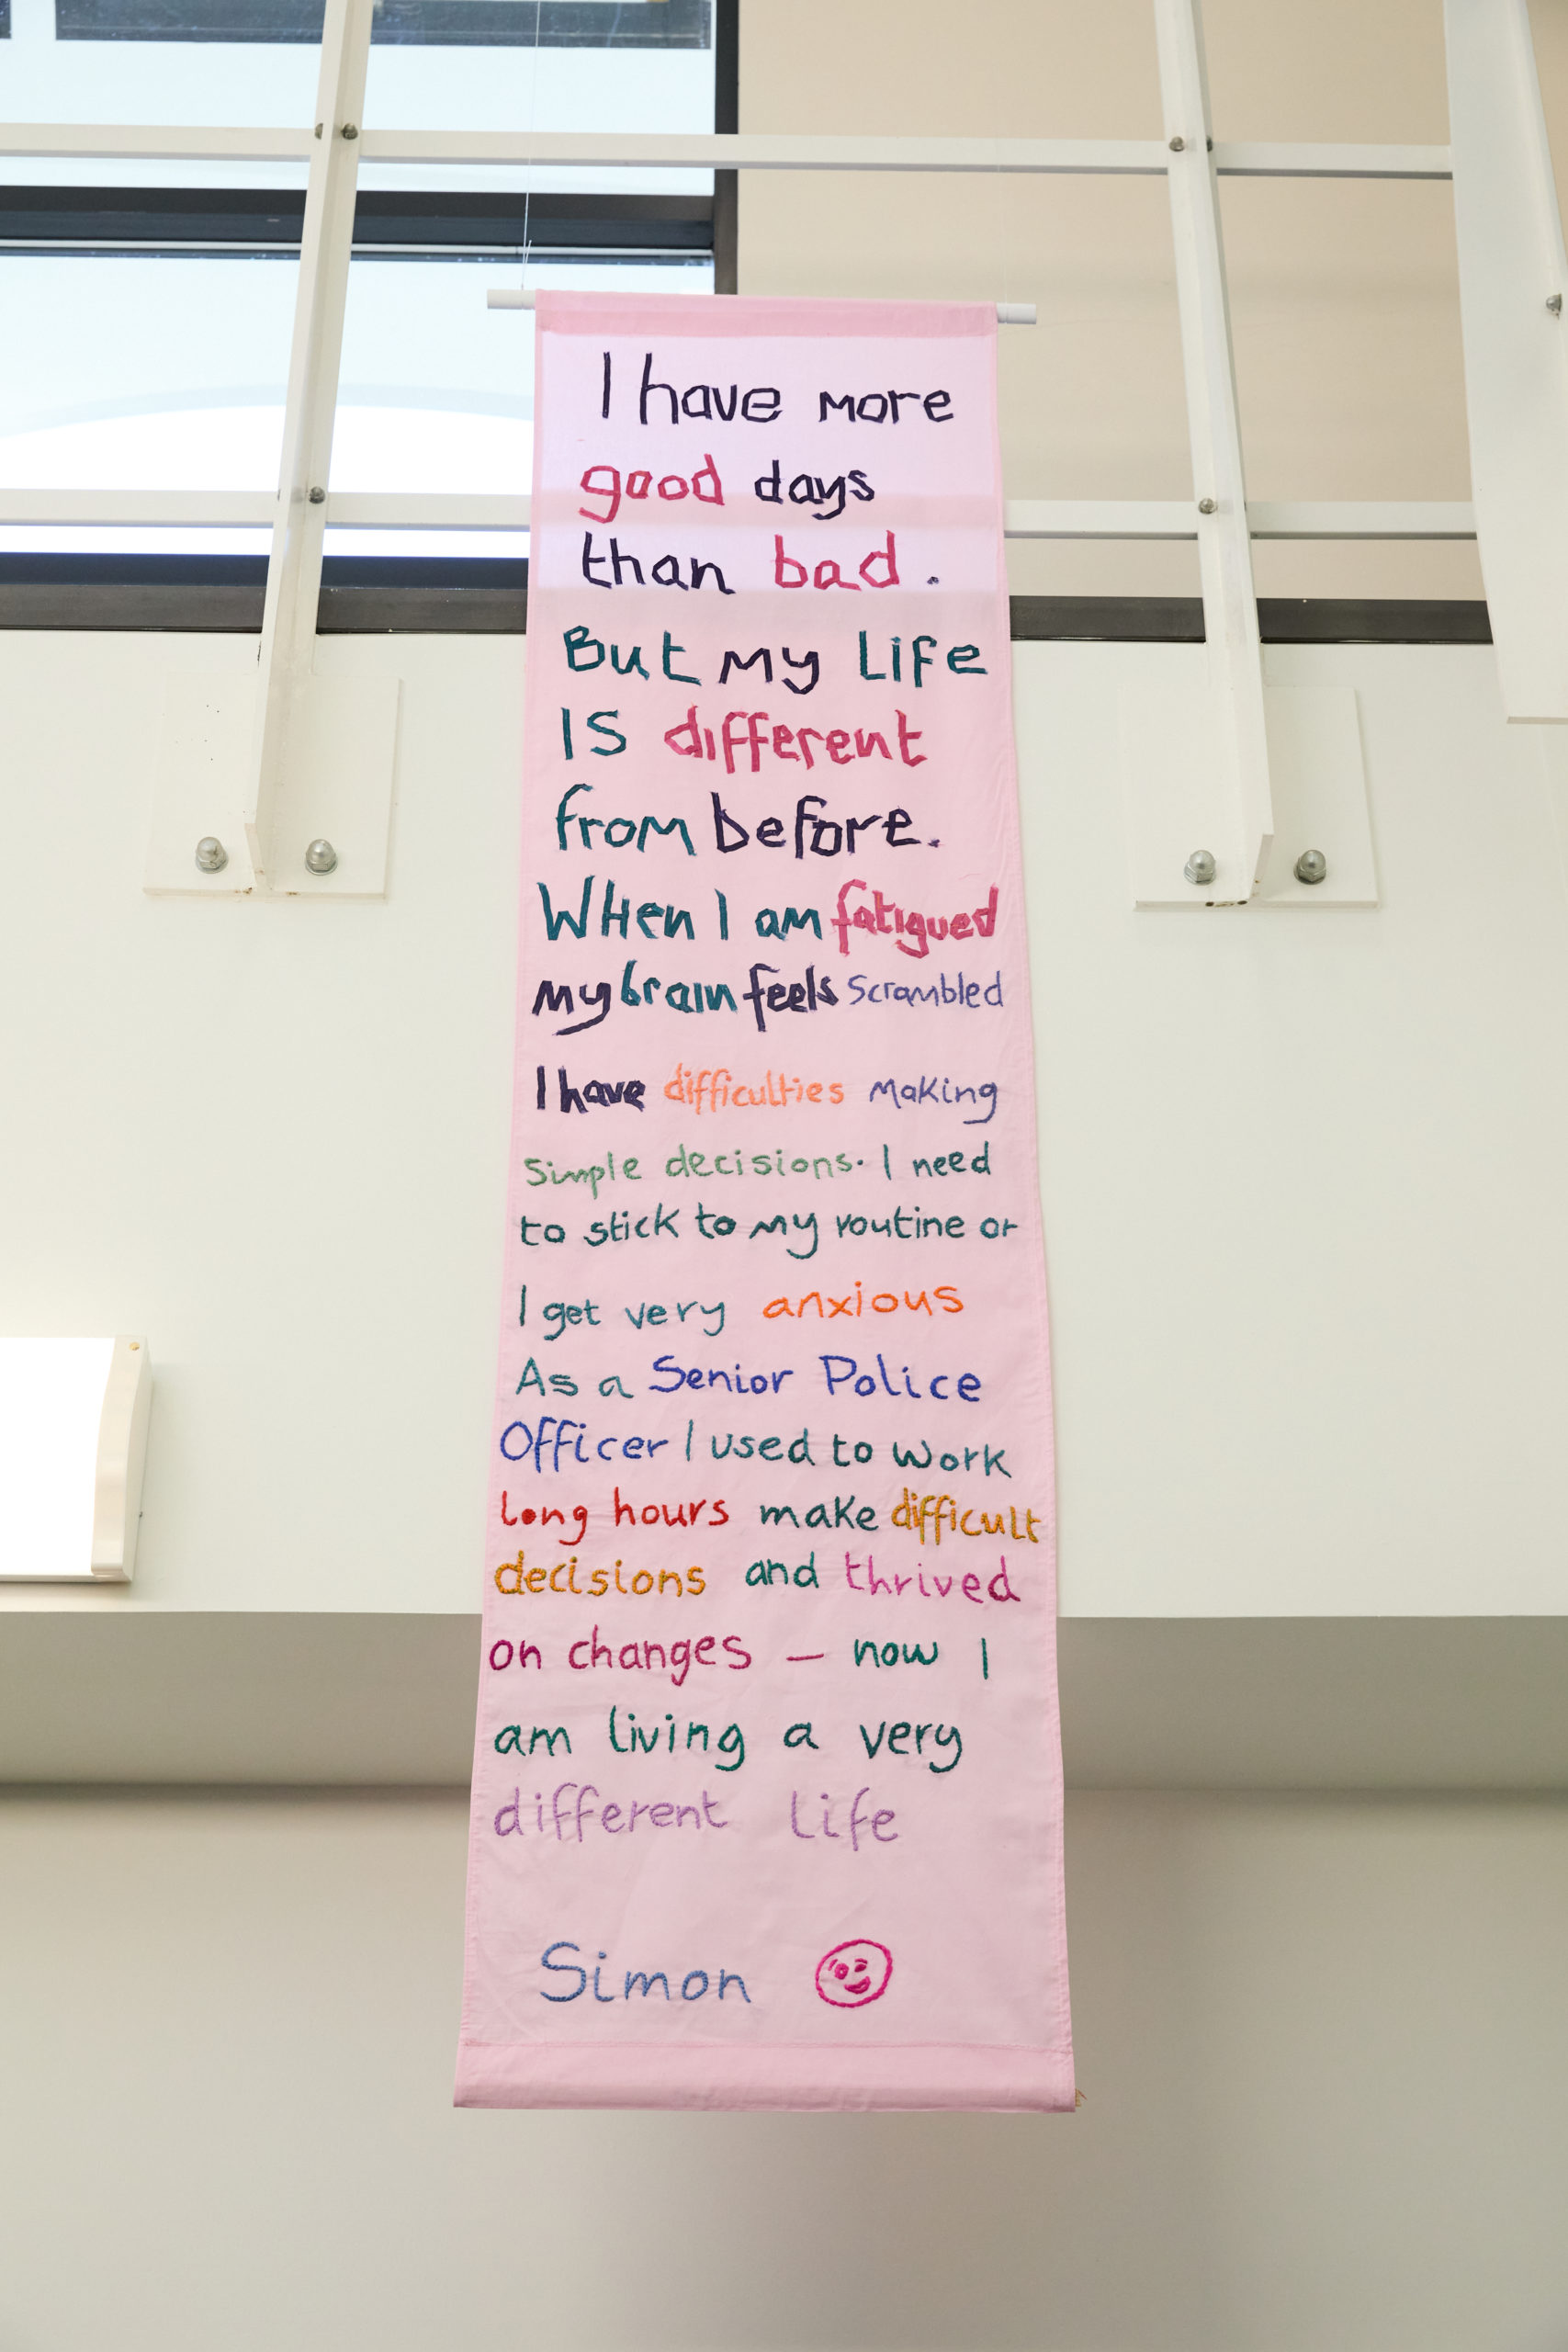 I have more
good days
than bad.
But my Life
IS different
from before.
WHen I am fatigued
my brain feels Scrambled
I have difficulties Making
Simple decisions. I need
to stick to my routine or
I get very anxious
As a Senior Police
Officer I used to work
long hours make difficult
decisions and thrived
on changes — now I
am living a very
different life
Simon